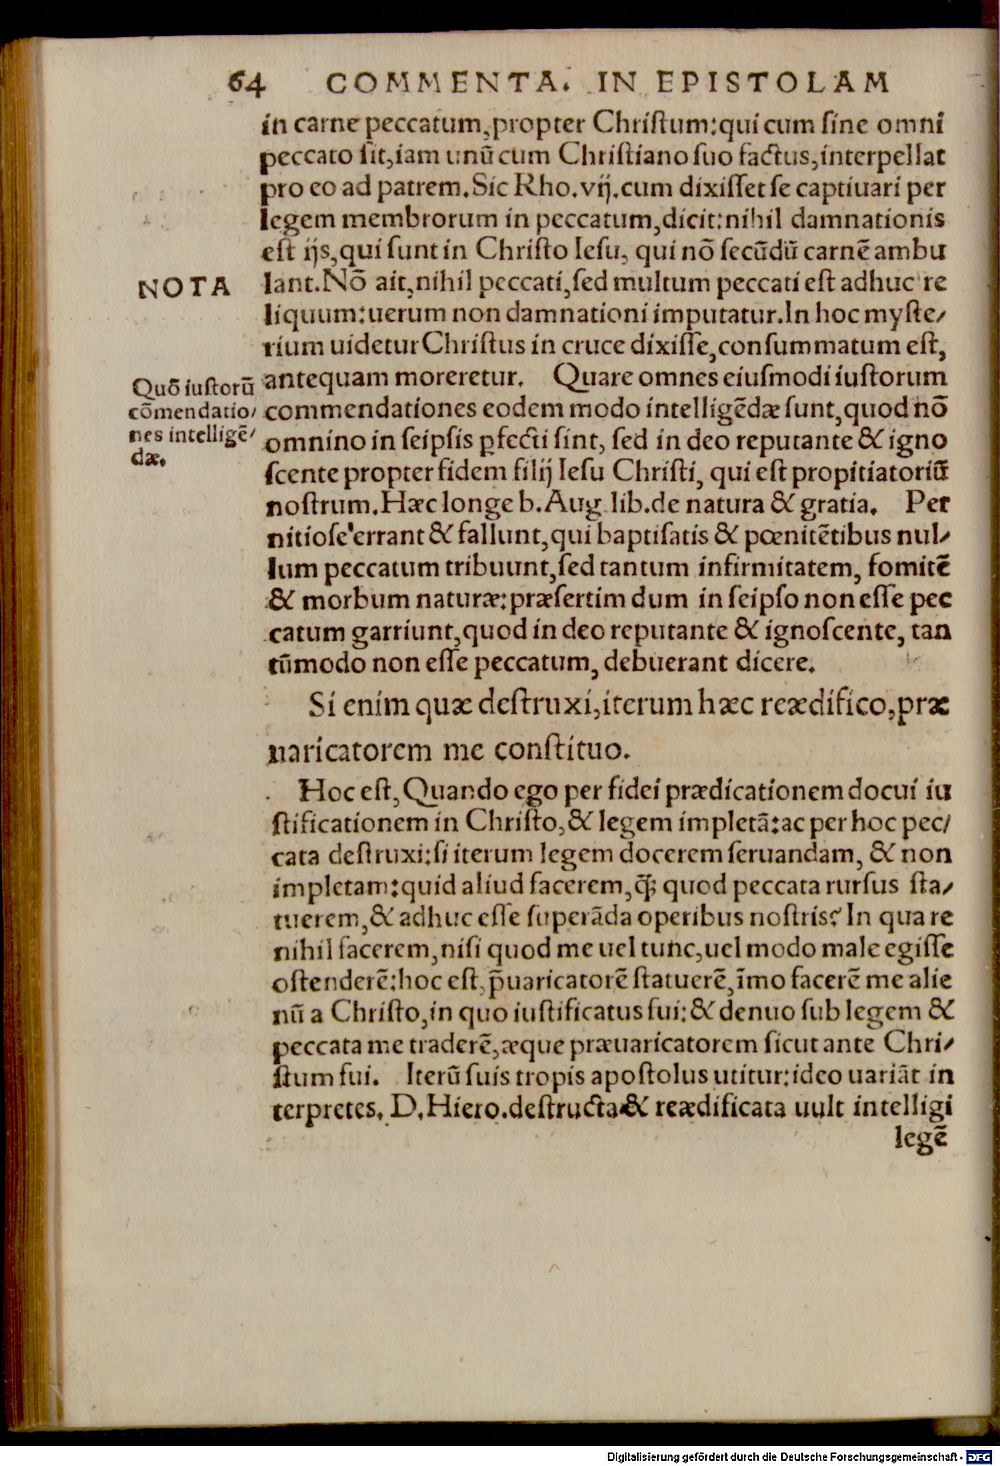 64 COMMENTA. IN EPISTOLAM
in carne peccatum,propter Chriſtum:qui cum ſine omni
peccato ſit,iam unũ cum Chriſtiano ſuo factus,interpellat
pro eo ad patrem.Sic Rho.vij.cum dixiſſet ſe captiuari per
legem membrorum in peccatum,dicit:nihil damnationis
eſt ijs,qui ſunt in Chriſto Ieſu, qui nõ ſecũdũ carnẽ ambu
NOTA
lant.Nõ ait,nihil peccati,ſed multum peccati eſt adhuc re
liquum:uerum non damnationi imputatur.In hoc myſte/
rium uidetur Chriſtus in cruce dixiſſe,conſummatum eſt,
antequam moreretur. Quare omnes eiuſmodi iuſtorum
Quõ iuſtorũ
cõmendatio/
nes intelligẽ/
dæ.
commendationes eodem modo intelligẽdæ ſunt,quod nõ
omnino in ſeipſis ꝑfecti ſint, ſed in deo reputante & igno
ſcente propter fidem filij Ieſu Chriſti, qui eſt propitiatoriũ
noſtrum.Hæc longe b.Aug lib.de natura & gratia. Per
nitioſe errant & fallunt,qui baptiſatis & pœnitẽtibus nul/
lum peccatum tribuunt,ſed tantum infirmitatem, fomitẽ
& morbum naturæ:præſertim dum in ſeipſo non eſſe pec
catum garriunt,quod in deo reputante & ignoſcente, tan
tũmodo non eſſe peccatum, debuerant dicere.
Si enim quæ deſtruxi,iterum hæc reædifico,præ
uaricatorem me conſtituo.
Hoc eſt,Quando ego per fidei prædicationem docui iu
ſtificationem in Chriſto,& legem impletã:ac per hoc pec/
cata deſtruxi:ſi iterum legem docerem ſeruandam, & non
impletam:quid aliud facerem,q̃; quod peccata rurſus ſta/
tuerem,& adhuc eſſe ſuperãda operibus noſtris? In qua re
nihil facerem,niſi quod me uel tunc,uel modo male egiſſe
oſtenderẽ:hoc eſt,p̃uaricatorẽ ſtatuerẽ,ĩmo facerẽ me alie
nũ a Chriſto,in quo iuſtificatus fui:& denuo ſub legem &
peccata me traderẽ,æque præuaricatorem ſicut ante Chri/
ſtum fui. Iterũ ſuis tropis apoſtolus utitur:ideo uariãt in
terpretes. D.Hiero.deſtructa & reædificata uult intelligi
legẽ
Digitalisierung gefördert durch die Deutsche Forschungsgemeinschaft - DFG